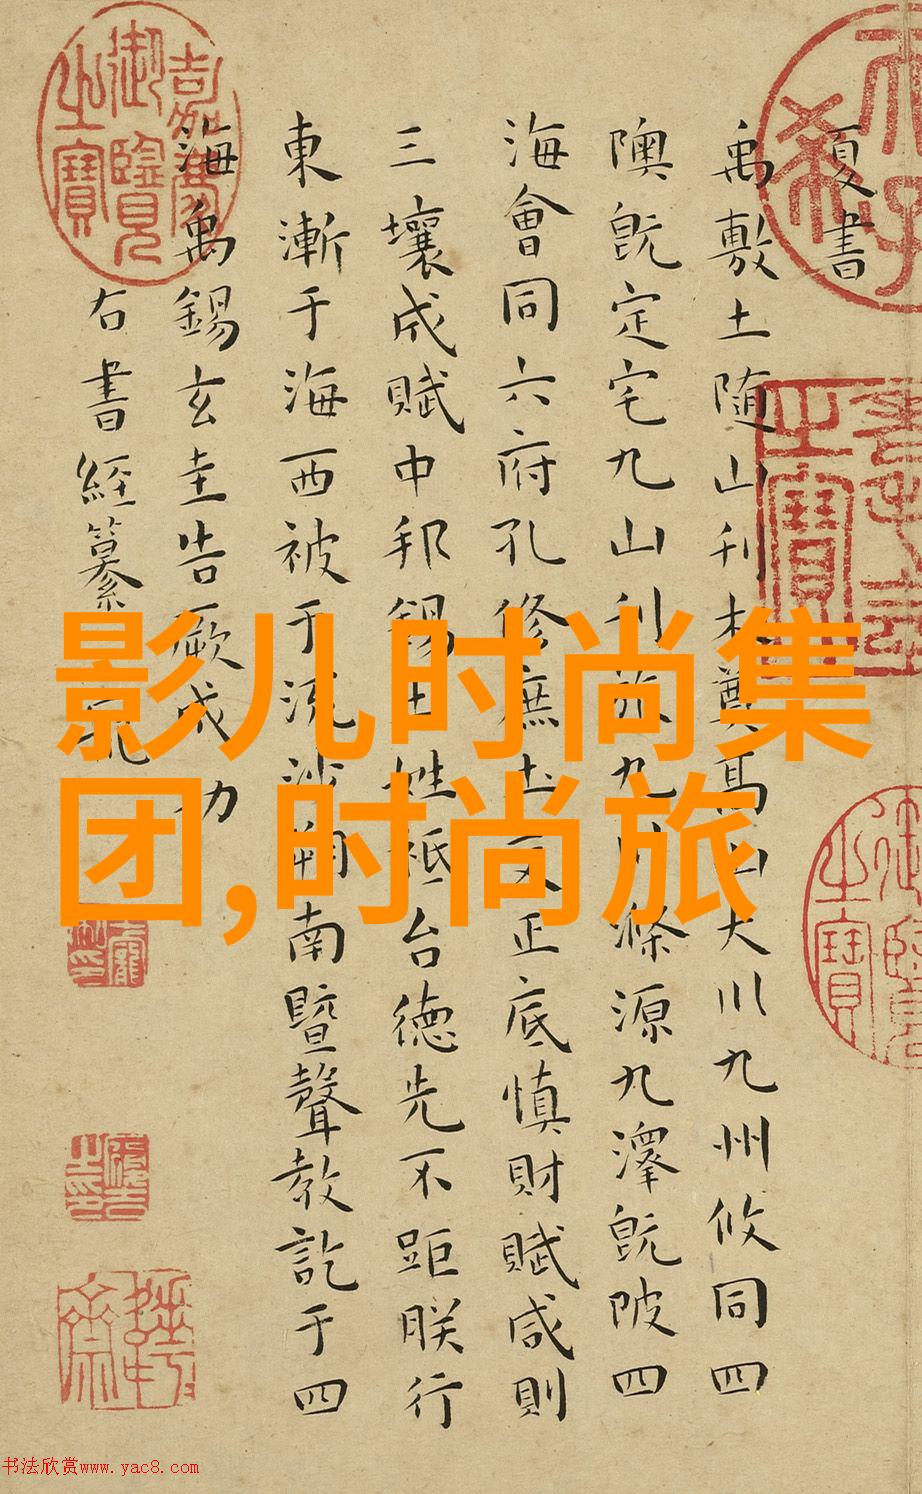 夏書
禹敷土随山刋木奠髙山大川九州攸同四
隩旣定宅九山刋旅九川滌源九澤旣陂四
海會同六府孔修庶土交正底慎財賦咸則
三壤成賦中邦錫土姓祗台德先不距朕行
東漸于海西被于流沙朔南暨聲教訖于四
海禹錫玄圭告厥成功
右書經纂
嘉慶御覽之寶
影儿时尚集
团,时尚旅
书法欣赏www.yac8.com